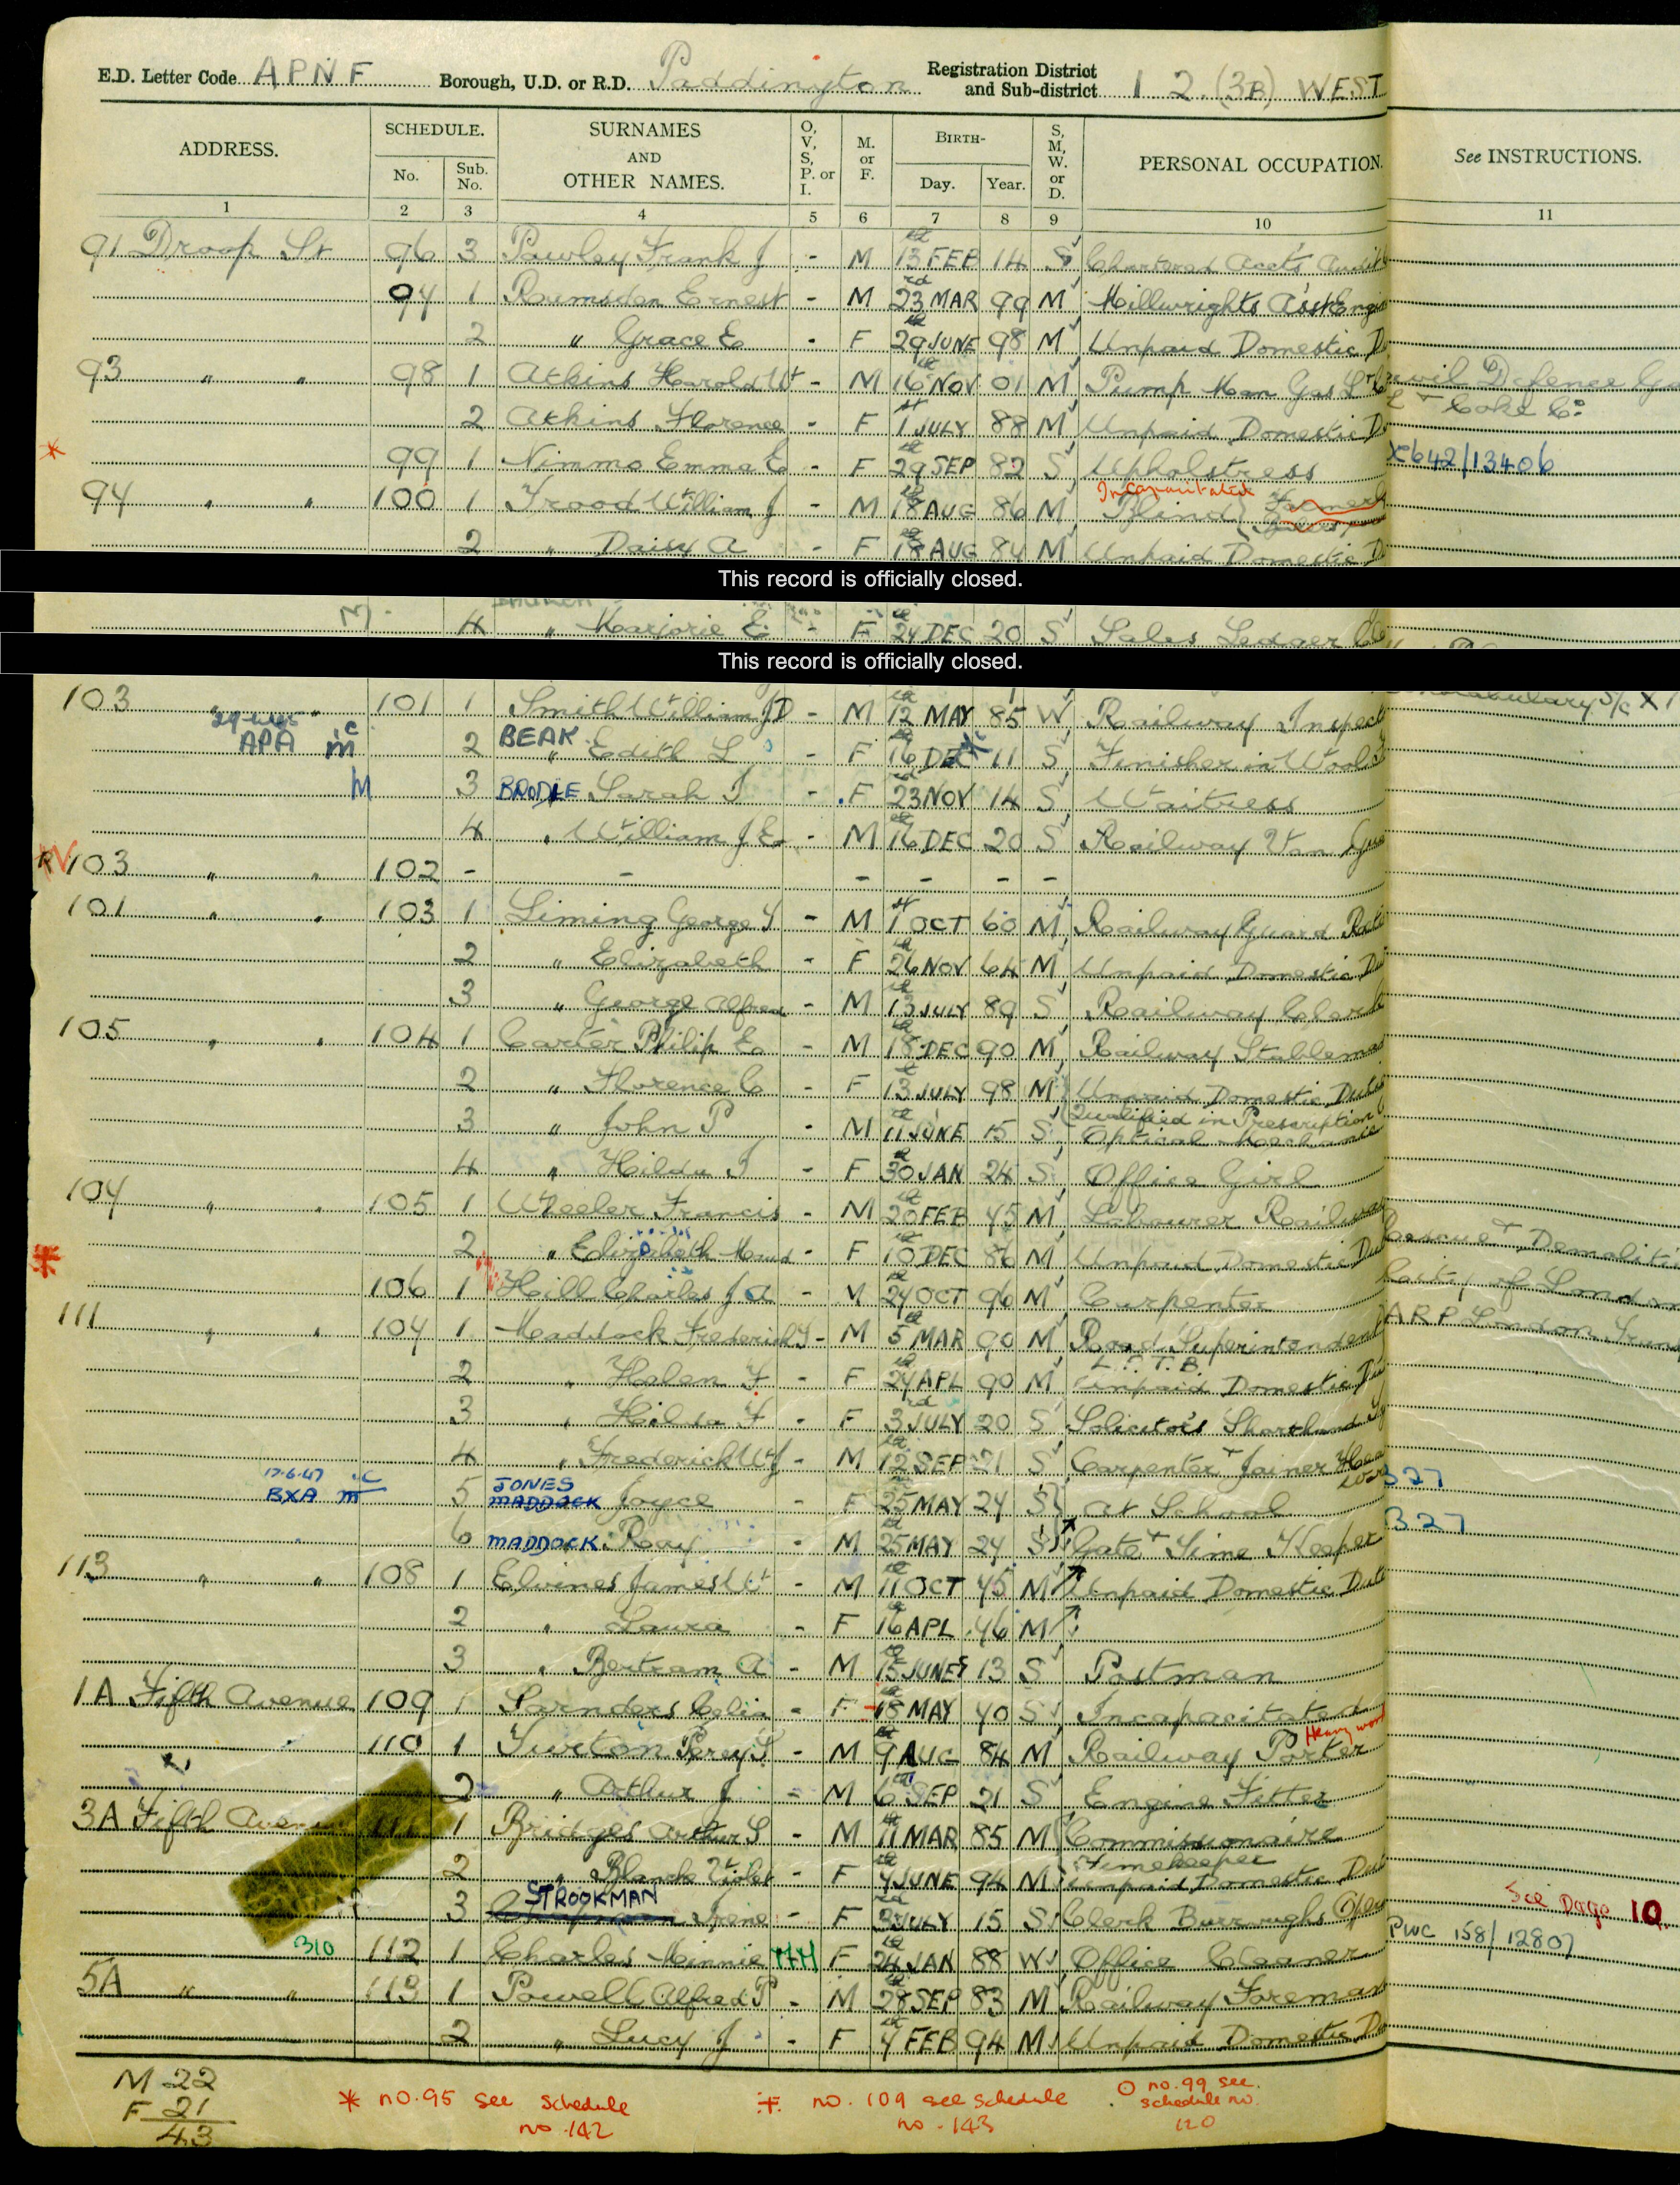 E.D. Letter Code APNF Borough, U.D. or R.D. Paddington Registration District and Sub-district 1 2 (3B) WEST
ADDRESS. SCHEDULE. No. Sub. No. SURNAMES AND OTHER NAMES. O, V, S, P. or I. M. or F. BIRTH- Day. Year. S, M, W. or D. PERSONAL OCCUPATION. See INSTRUCTIONS.
1 2 3 4 5 6 7 8 9 10 11
91 Droop St 96 3 Pawley Frank J - M 13th FEB 14 S Chartered Acct's Audit
97 1 Rumsden Ernest - M 23rd MAR 99 M Millwrights Ass't Engin
2 " Grace E - F 29th JUNE 98 M Unpaid Domestic D
93 " " 98 1 Atkins Harold W - M 16th NOV 01 M Pump Man Gas L + C Civil Defence Ga
L + Coke Co
2 Atkins Florence - F 1st JULY 88 M Unpaid Domestic D
* 99 1 Nimmo Emma E - F 29th SEP 82 S Upholstress X642/13406
Incapacitated
94 " " 100 1 Frood William J - M 18th AUG 86 M Blind
2 " Daisy A - F 18th AUG 84 M Unpaid Domestic D
This record is officially closed.
4 " Marjorie E - F 24th DEC 20 S Sales Ledger Cle
This record is officially closed.
103 " " 101 1 Smith William JD - M 12th MAY 85 W Railway Inspect
APA m c 2 BEAK " Edith L - F 16th DEC 11 S Finisher in Wool
M 3 BRODIE Sarah J - F 23rd NOV 14 S Waitress
4 " William J E - M 16th DEC 20 S Railway Van Gua
103 " " 102 - - - - - -
101 " " 103 1 Liming George T - M 1st OCT 60 M Railway Guard Reti
2 " Elizabeth - F 26th NOV 64 M Unpaid Domestic Dut
3 " George Alfred - M 13th JULY 89 S Railway Clerk
105 " " 104 1 Carter Philip E - M 18th DEC 90 M Railway Stableman
2 " Florence C - F 13th JULY 98 M Unpaid Domestic Duties
Qualified in Prescription
3 " John P - M 11th JUNE 15 S Optical Mechanic
4 " Hilda J - F 30th JAN 24 S Office Girl
107 " " 105 1 Wheeler Francis - M 20th FEB 75 M Labourer Railway
2 " Elizabeth Maud - F 10th DEC 86 M Unpaid Domestic Dut Rescue + Demoliti
* 106 1 Hill Charles J A - M 24th OCT 96 M Carpenter City of London
111 " " 107 1 Maddock Frederick J - M 5th MAR 90 M Road Superintendent ARP London Trans
L.P.T.B.
2 " Helen F - F 27th APL 90 M Unpaid Domestic Du
3 " Hilda F - F 3rd JULY 20 S Solicitor's Shorthand Ty
4 " Frederick W J - M 12th SEP 21 S Carpenter + Joiner
17.6.47 .C
BXA m 5 JONES MADDOCK Joyce - F 25th MAY 24 S At School 327
6 MADDOCK Roy - M 25th MAY 24 S Gate + Time Keeper 327
113 " " 108 1 Elvines James W - M 11th OCT 75 M Unpaid Domestic Dut
2 " Laura - F 16th APL 76 M
3 " Bertram A - M 15th JUNE 13 S Postman
1A Fifth Avenue 109 1 Sarnders Celia - F 18th MAY 70 S Incapacitated
Heavy work
110 1 Turton Percy S - M 9th AUG 84 M Railway Porter
2 " Arthur J - M 6th SEP 21 S Engine Fitter
3A Fifth Avenue 111 1 Bridges Arthur S - M 11th MAR 85 M Commissionaire
Timekeeper
2 " Blanche Violet - F 4th JUNE 94 M Unpaid Domestic Dut
3 STROOKMAN Irene - F 3rd JULY 15 S Clerk Burroughs Oper See Page 10
310 112 1 Charles Minnie F 24th JAN 88 W Office Cleaner PWC 158/12807
5A " " 113 1 Powell Alfred P - M 28th SEP 83 M Railway Foreman
2 " Lucy J - F 4th FEB 94 M Unpaid Domestic Du
M 22
F 21
43
* no. 95 see schedule no. 142
no. 109 see schedule no. 143
no. 99 see schedule no. 120